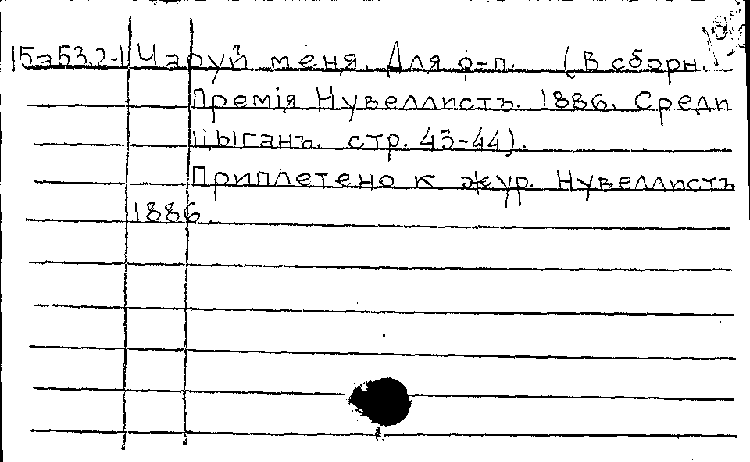 15а53.2-1 Чаруй меня. Для ф-п. (В сборн.
Премія Нувеллистъ. 1886. Среди
цыганъ. стр. 43-44).
Приплетено к жур. Нувеллистъ
1886.